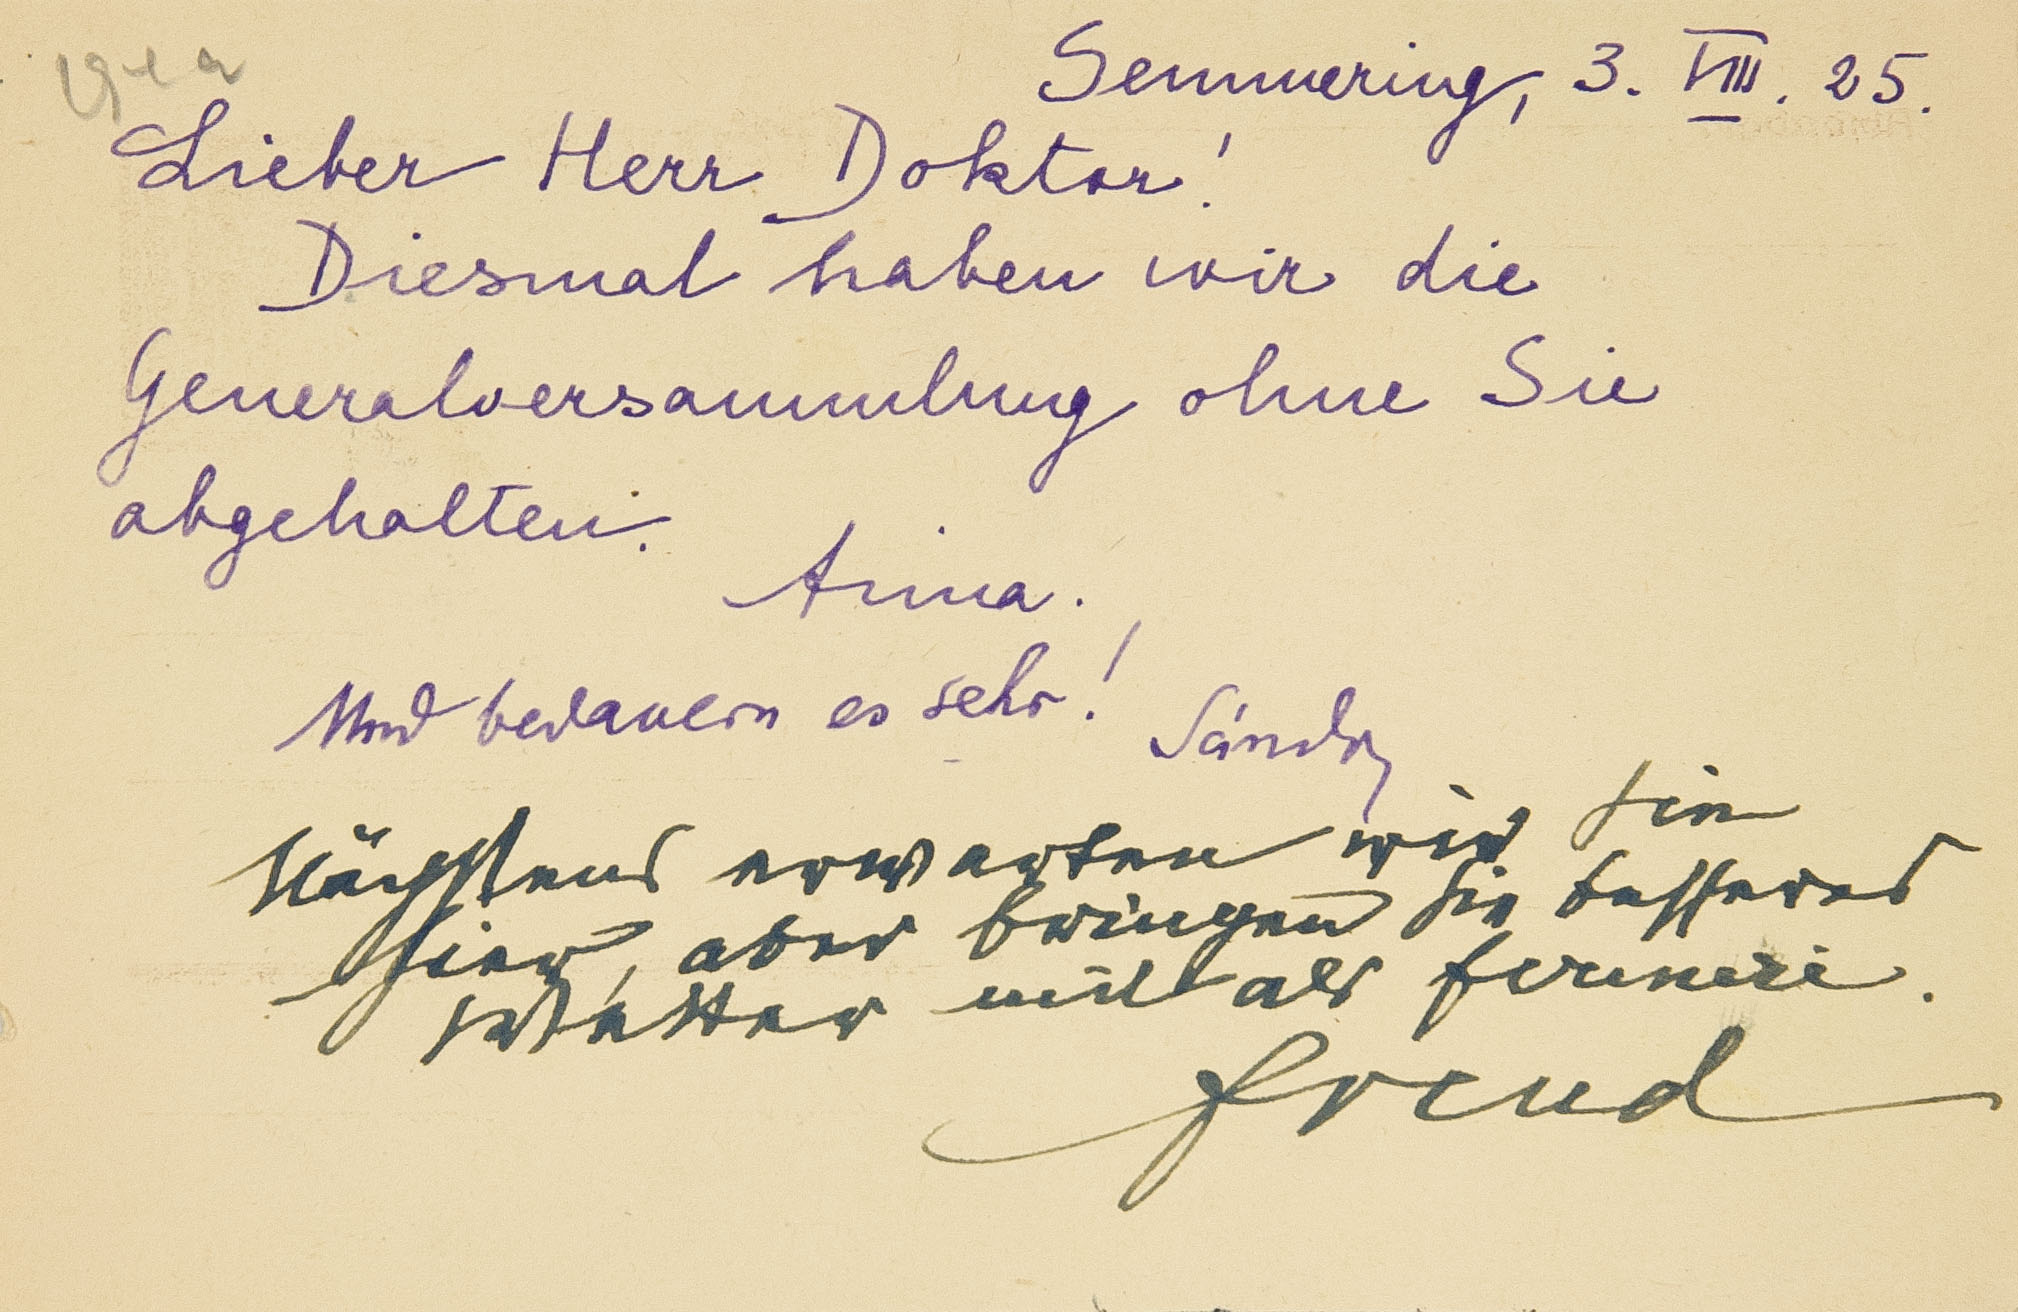 Semmering, 3. VIII. 25.
Lieber Herr Doktor!
Diesmal haben wir die
Generalversammlung ohne Sie
abgehalten.
Anna.
Und bedauern es sehr!
Sándor
Nächstens erwarten wir Sie
hier, aber bringen Sie besseres
Wetter mit als Ferenczi.
Freud